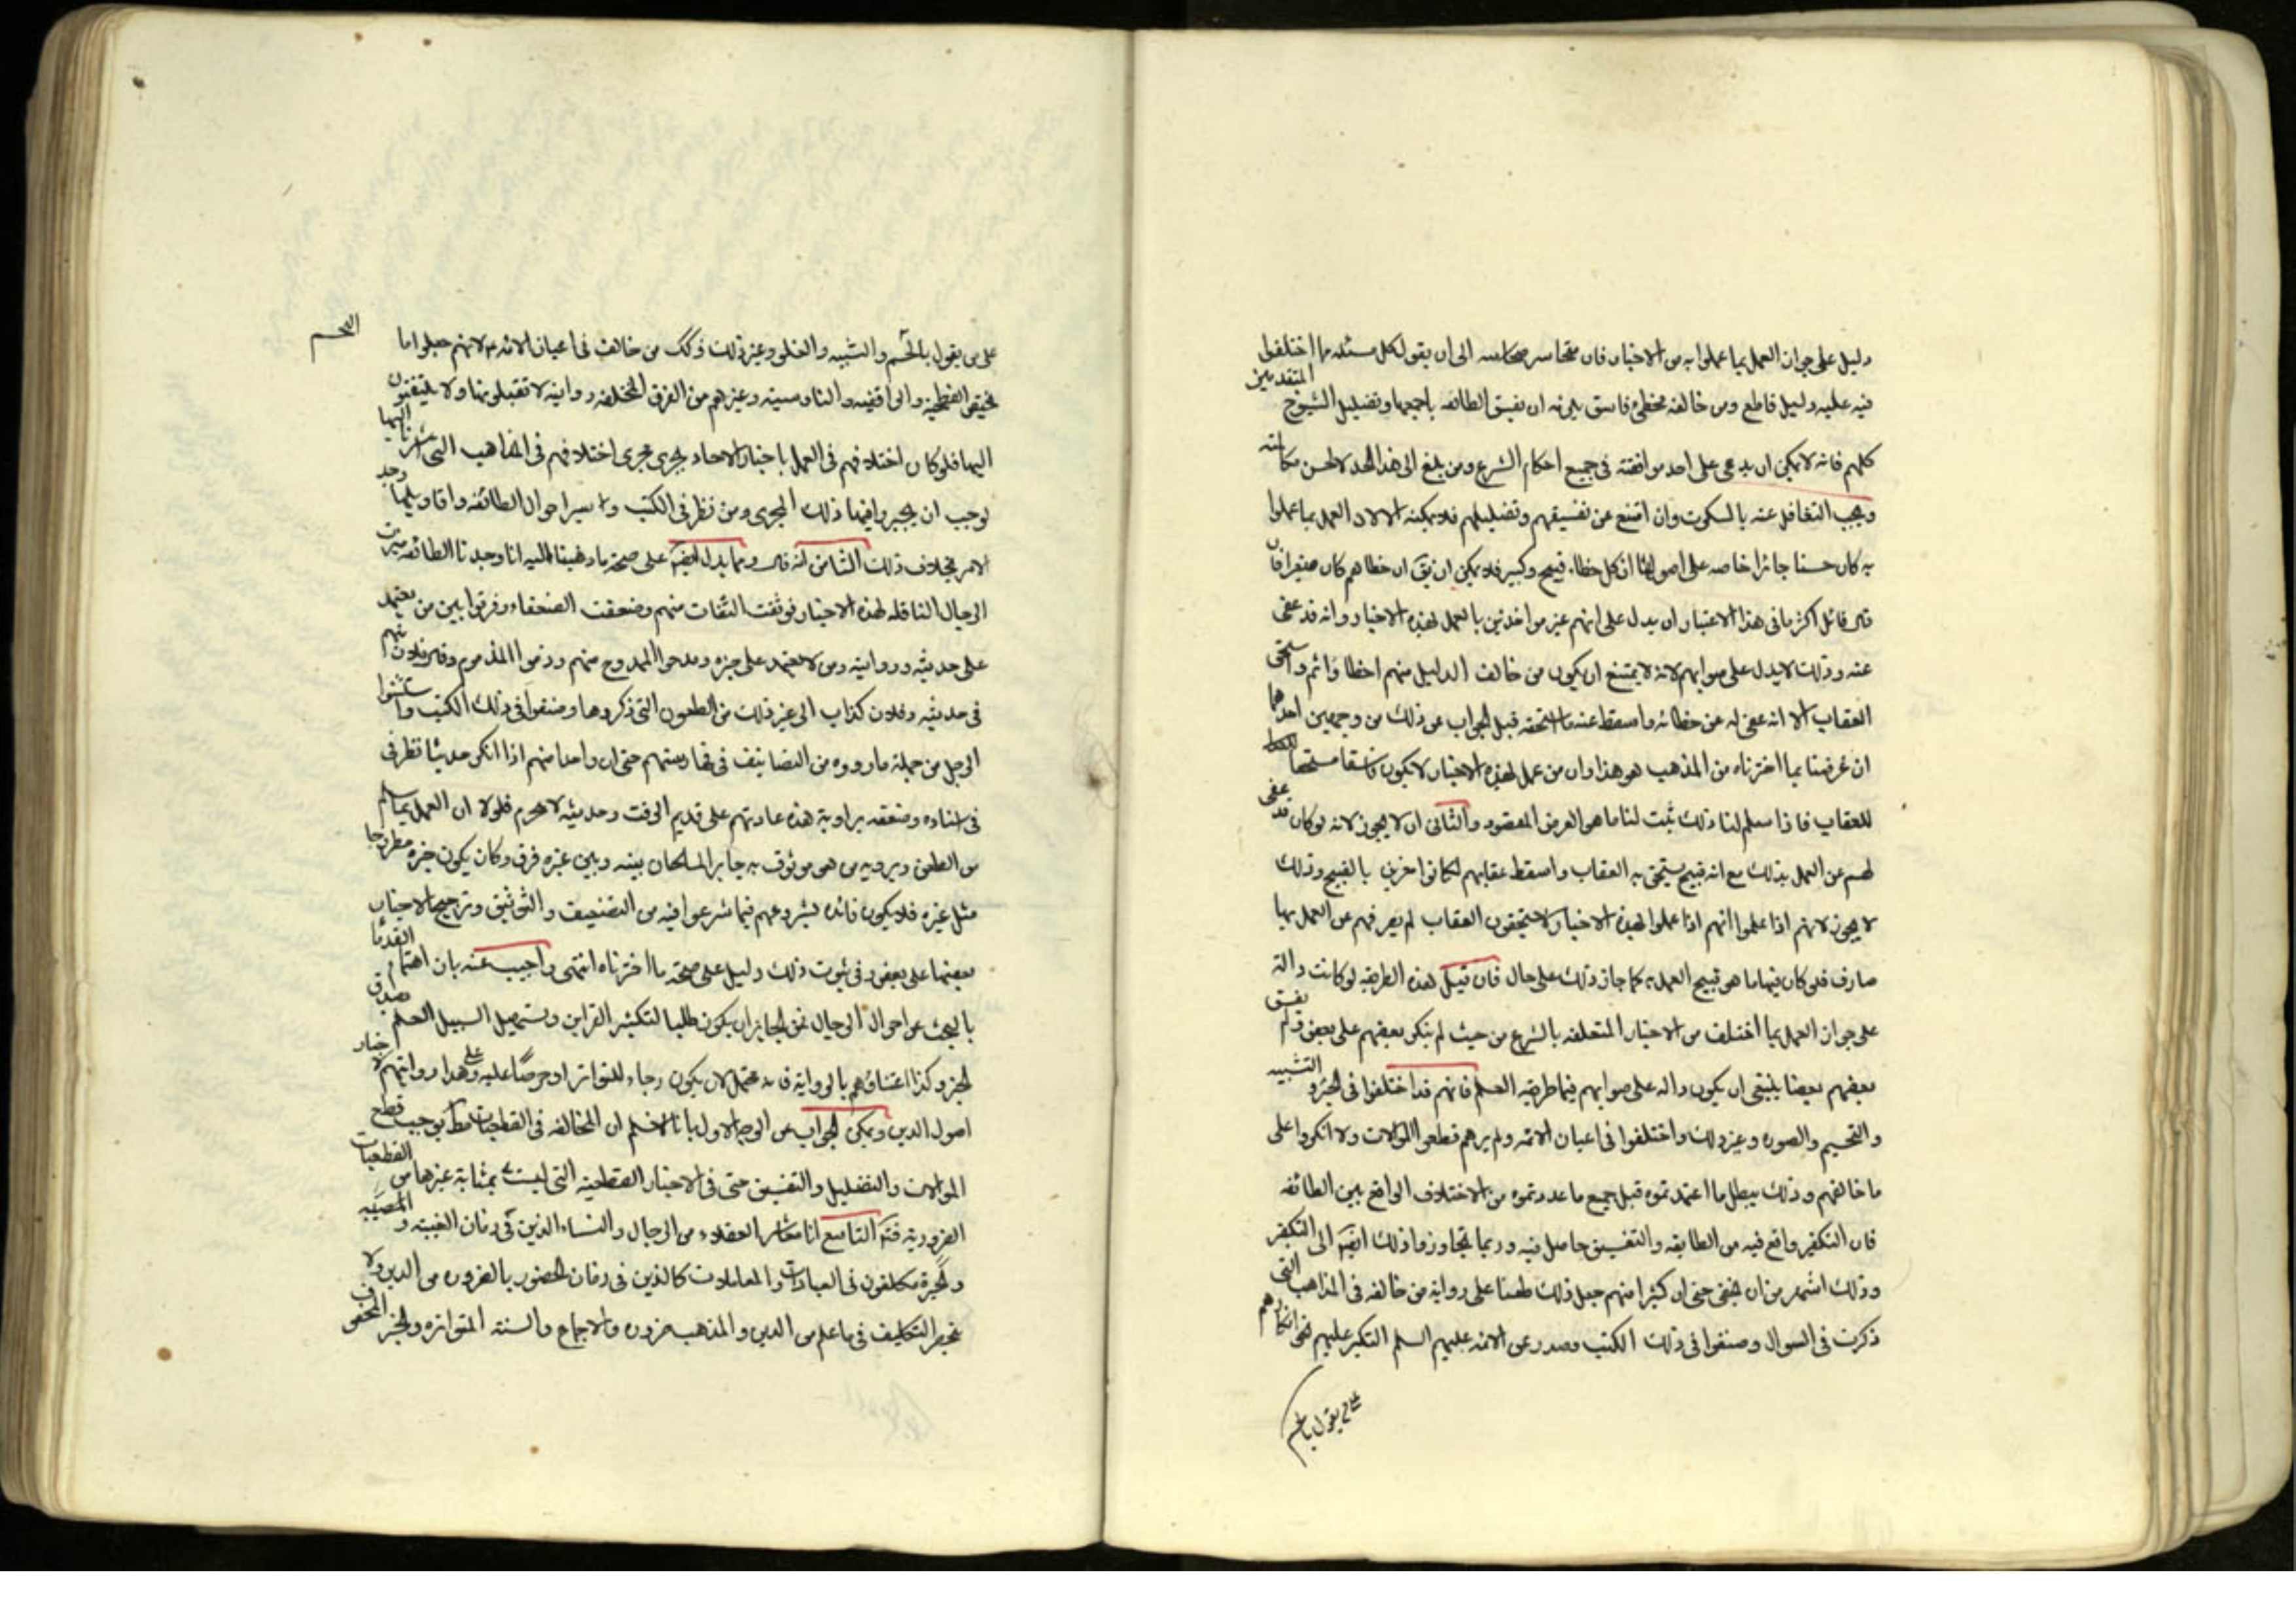 دليل على جواز العمل بما عملوا به من الاخبار فان متجاسر الى ان يقول كل مسئلة مما اختلفوا
فيه عليه دليل قاطع ومن خالفه مخطئ فاسق يلزمه ان يفسق الطائفه باجمعها وتضليل الشيوخ المتقدمين
كلهم فانه لا يمكن ان يدعى على احد موافقته فى جميع احكام الشرع ومن بلغ الى هذا الحد لا يحسن مكالمته
ويجب التغافل عنه بالسكوت وان امتنع عن تفسيقهم وتضليلهم فلا يمكنه الا لان العمل بما عملوا
به كان حسنا جائزا خاصه على اصولنا ان كل خطاء قبيح وكبير فلا يمكن ان يق ان خطاهم كان صغيرا فان
قال قائل اكثر ما فى هذا الاعتبار ان يدل على انهم غير مواخذين بالعمل بهذه الاخبار وانه قد عفى
عنه وذلك لا يدل على صوابهم لانه لا يمتنع ان يكون من خالف الدليل منهم اخطا واثم واستحق
العقاب الا انه عفى له عن خطائه واسقط عنه ما استحقه قيل الجواب عن ذلك من وجهين احدهما
ان غرضنا بما اخترناه من المذهب هو هذا وان من عمل بهذه الاخبار لا يكون فاسقا مستحقا
للعقاب فاذا سلم لنا ذلك ثبت لنا ما هو الغرض المقصود والثانى ان لا يجوز لانه لو كان قد عفى
لهم عن العمل بذلك مع انه قبيح يستحق به العقاب واسقط عقابهم لكانوا مغرين بالقبيح وذلك
لا يجوز لانهم اذا علموا انهم اذا عملوا بهذه الاخبار لا يستحقون العقاب لم يصرفهم عن العمل بها
صارف فلو كان فيها ما هو قبيح العمل به لما جاز ذلك على حال فان قيل هذه الطريقه لو كانت دالة
على جواز العمل بما اختلف من الاخبار المتعلقه بالشرع من حيث لم ينكر بعضهم على بعض ولم يفسق
بعضهم بعضا ينبغى ان يكون داله على صوابهم فيما طريقه العلم فانهم قد اختلفوا فى الجبر والتشبيه
والتجسيم والصوره وغير ذلك واختلفوا فى اعيان الائمه ولم نرهم قطعوا الموالات ولا انكروا على
ما خالفهم وذلك يبطل ما اعتمدتموه قيل جميع ما عددتموه من الاختلاف الواقع بين الطائفه
فان التكفير واقع فيه من الطايفه والتفسيق حاصل فيه وربما تجاوزوا ذلك ايضا الى التكفير
وذلك اشهر من ان يخفى حتى ان كثيرا منهم جعل ذلك طعنا على رواية من خالفه فى المذاهب التى
ذكرت فى السوال وصنفوا فى ذلك الكتب وصدر عن الائمه عليهم السلم النكير عليهم نحو انكارهم
على من يقول بالجسم
على من يقول بالتجسم والتشبيه والغلو وغير ذلك وكذلك من خالف فى اعيان الائمه لانهم جعلوا ما
التجسم
يختص الفطحية والواقفيه والناووسيه وغيرهم من الفرق المختلفه روايته لا تقبلونها ولا يلتفتون
اليها فلو كان اختلافهم فى العمل باخبار الاحاد يجرى مجرى اختلافهم فى المذاهب التى اشرنا اليها
لوجب ان يجروا فيها ذلك المجرى ومن نظر فى الكتب واسبر احوال الطائفه واقاويلها وجد
الامر بخلاف ذلك الثامن انه قال ومما يدل ايضا على صحة ما ذهبنا اليه انا وجدنا الطائفه ميزت
الرجال الناقله لهذه الاخبار فوثقت الثقات منهم وضعفت الضعفاء وفرقوا بين من يعتمد
على حديثه وروايته ومن لا يعتمد على خبره ومدحوا الممدوح منهم وذموا المذموم وقالوا فلان متهم
فى حديثه وفلان كذاب الى غير ذلك من الطعون التى ذكروها وصنفوا فى ذلك الكتب واستثنوا
الرجل من جملة ما رووه من التصانيف فى فهارستهم حتى ان واحدا منهم اذا انكر حديثا نظر فى
فى اسناده وضعفه براويه هذه عادتهم على قديم الوقت وحديثه لا تنخرم فلولا ان العمل بما يسلم
من الطعن ويرويه من هو موثوق به جايز لما كان بينه وبين غيره فرق وكان يكون خبره مطروحا
مثل غيره فلا يكون فائده لشروعهم فيما شرعوا فيه من التضعيف والتوثيق وترجيح الاخبار
بعضها على بعض وفى ثبوت ذلك دليل على صحة ما اخترناه انتهى واجيب عنه بان اهتمام القدما
بالبحث عن احوال الرجال فمن الجايز ان يكون طلبا لتكثير القراين وتسهيل السبيل العلم بصدق
الخبر وكذا اعتناؤهم بالرواية فانه محتمل لان يكون رجاء للتواتر او حرصا عليه وعلى هذا روايتهم لاخبار
اصول الدين ويمكن الجواب عن الوجه الاول بانا لا نسلم ان المخالفه فى القطعيات مطلقا يوجب قطع
الموالات والتضليل والتفسيق حتى فى الاخبار القطعيه التى ليست بمثابة غيرها من القطعيات
الضروريه فتم التاسع انا معاشر العقلاء من الرجال والنساء الذين فى زمان الغيبة و المصيبه
والحيرة مكلفون فى العبادات والمعاملات كالذين فى زمان الحضور بالضروره من الدين ولا
ينحصر التكليف فى ما علم من الدين والمذهب ضروره والاجماع والسنة المتواتره والخبر المحفوف